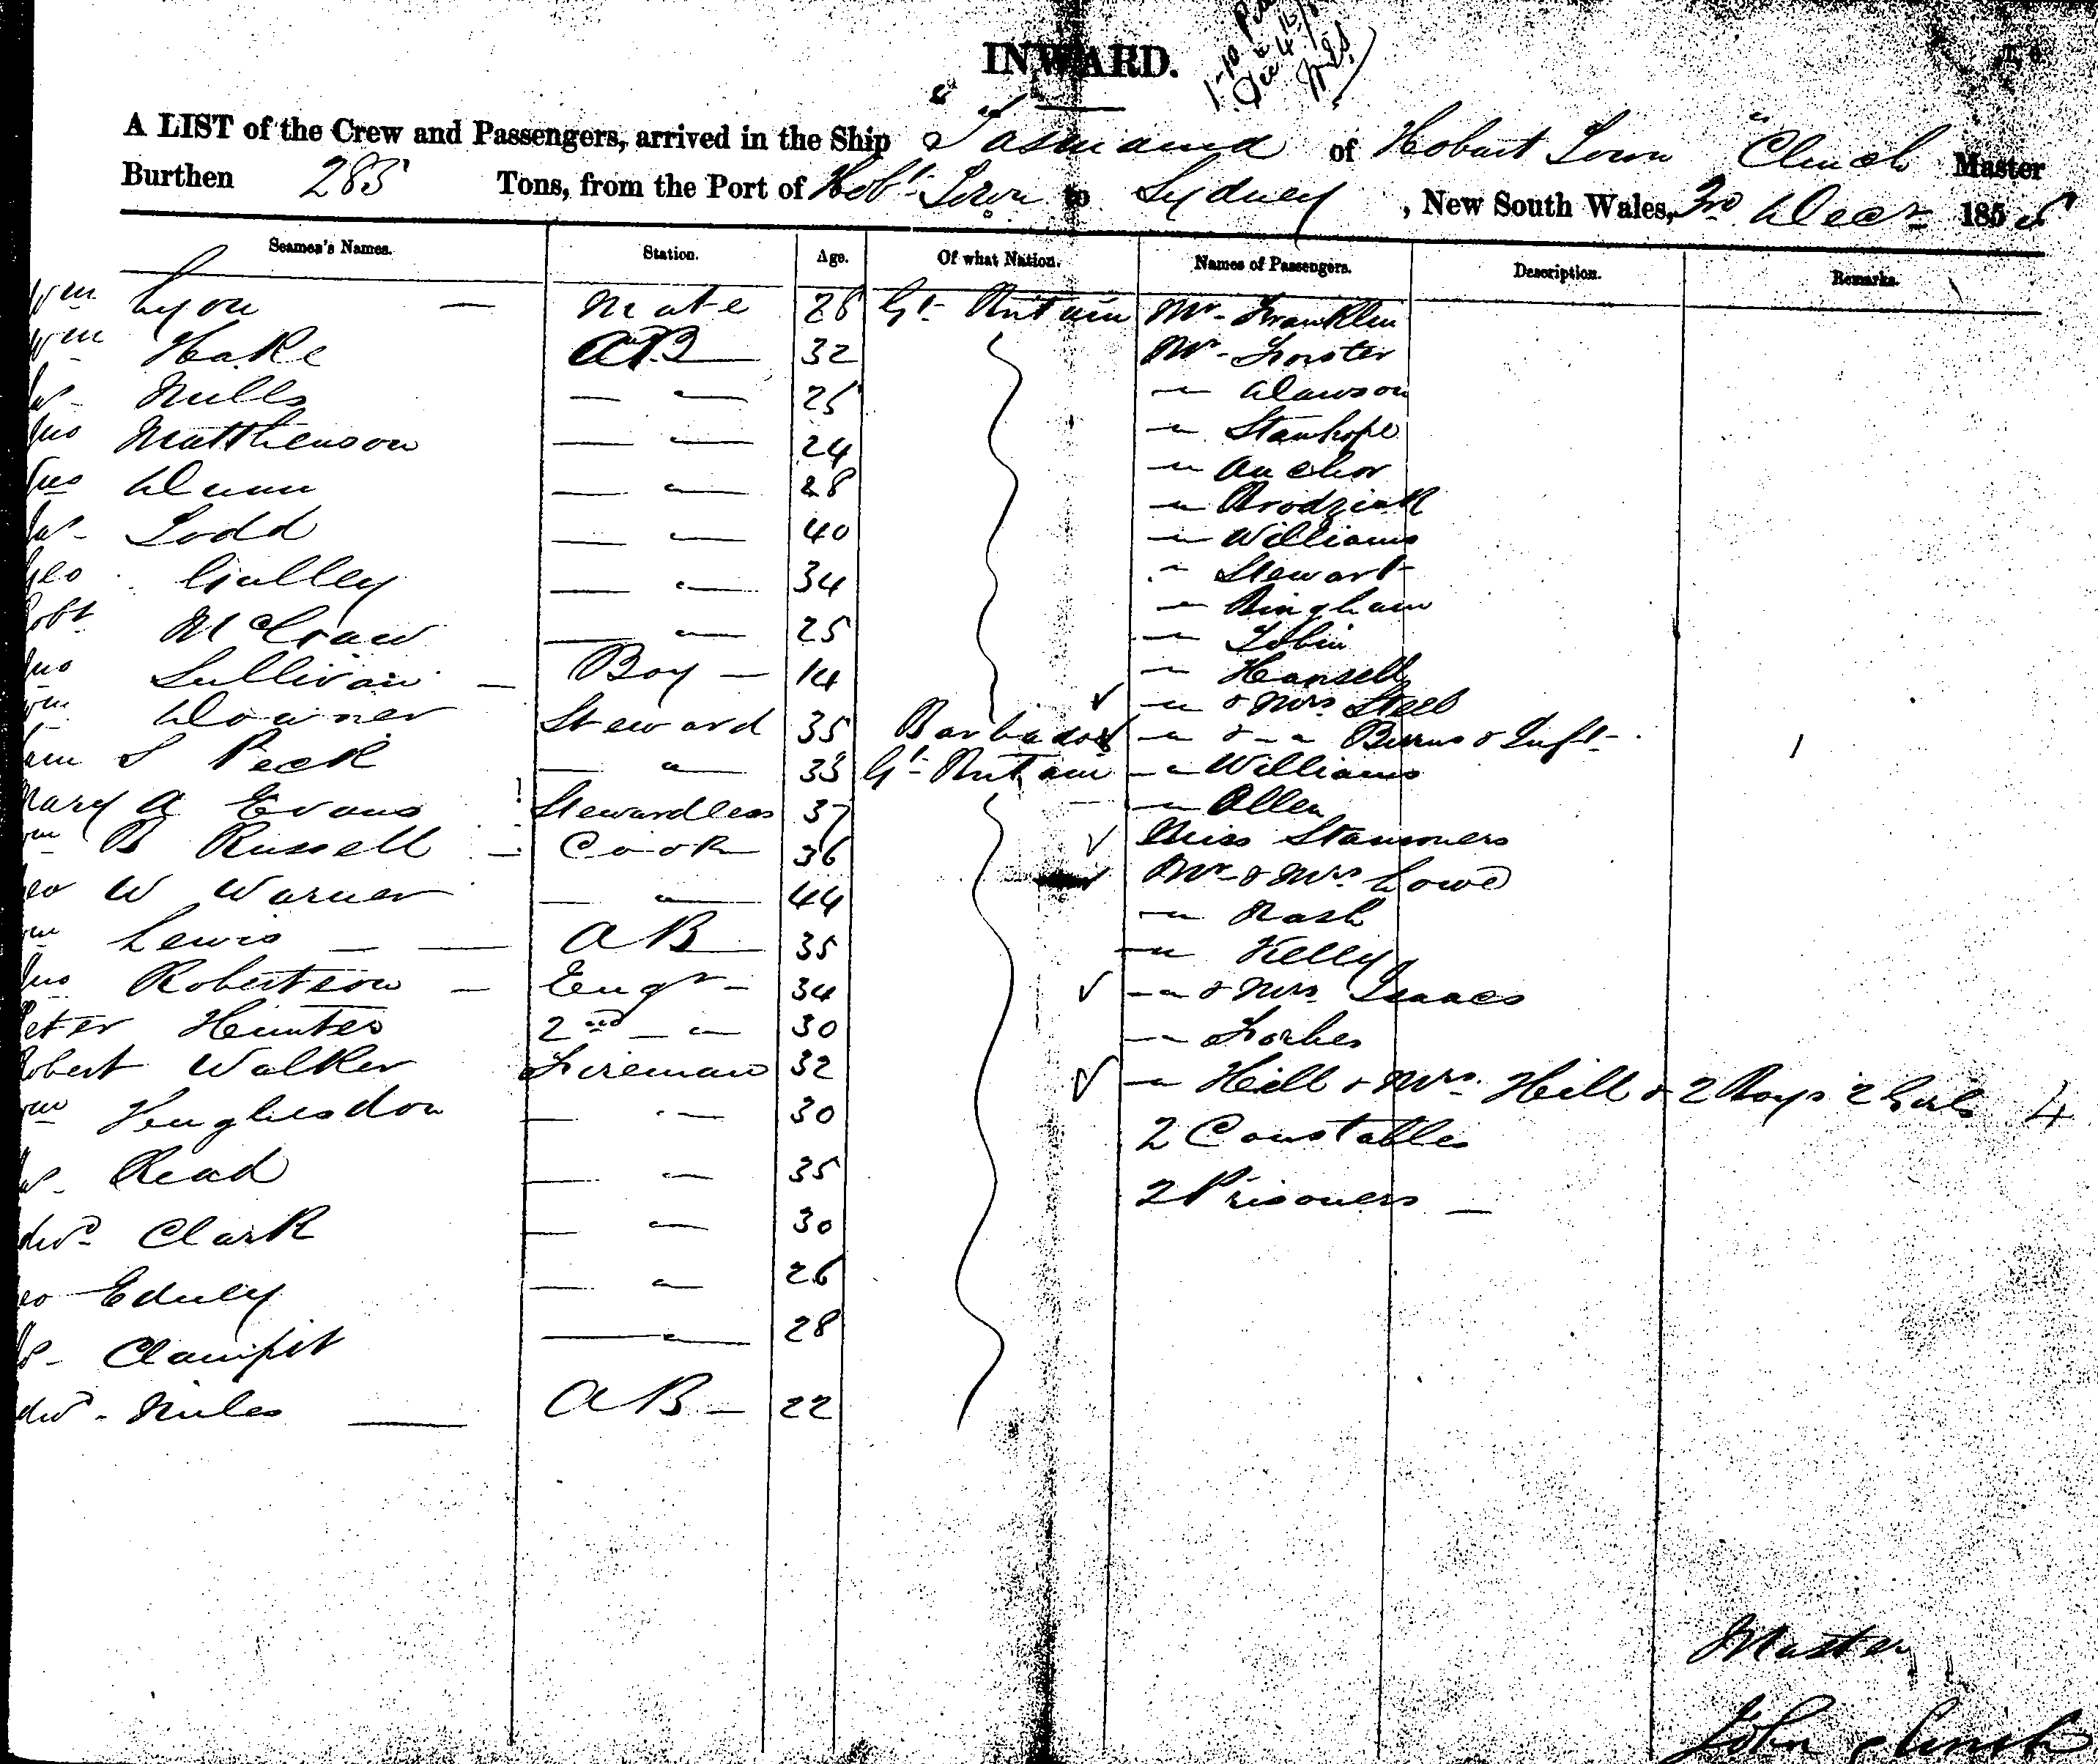 INWARD.
A LIST of the Crew and Passengers, arrived in the Ship "Tasmania of Hobart Town" Clinch Master
Burthen 285 Tons, from the Port of Hobt Town to Sydney, New South Wales, 3rd Decr 1858
Seamen's Names. Station. Age. Of what Nation. Names of Passengers. Description. Remarks.
Wm Lyon — Mate 28 Gt Britain Mr Franklin
Wm Hake AB 32 Mr Forster
Mills — " 25 — " Dawson
Jno Matthewson — " 24 — " Stanhope
Jno Dunn — " 28 — " Anchor
Todd — " 40 — " Brodziak
Geo Galley — " 34 — " Williams
Robt McGraw — " 25 — " Stewart
— " Bingham
— " Tobin
Jno Sullivan — Boy — 14 — " Hansell
Wm Downer Steward 35 Barbados — " & Mrs Steel
S Peck — " 35 Gt Britain — " & — " Burns & Inft 1
— " Williams
Mary A Evans Stewardless 37 — " Allen
Wm B Russell — Cook 36 Miss Stammers
Geo W Warner — " 44 Mr & Mrs Lowe
— " Nash
Wm Lewis — — AB 35 — " Kelly
Jno Robertson — Engr — 34 — " & Mrs Isaacs
Peter Hunter 2nd — " 30 — " Forbes
Robert Walker Fireman 32 — " Hill & Mrs Hill & 2 Boys 2 Girls 4
Wm — " 30 2 Constables
Read — " 35 2 Prisoners —
Edwd Clark — " 30
Geo — " 26
Clampit — " 28
Edwd Miles — AB — 22
Master
John Clinch